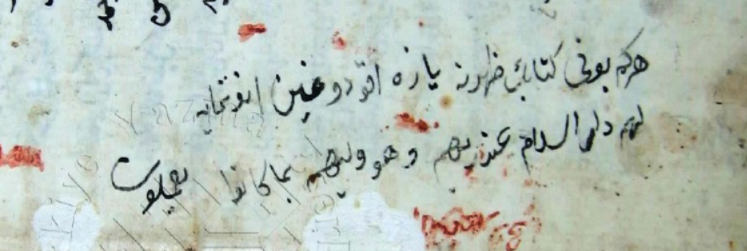 هركم بونى كتابك ظهرنه يازه اقودوغين اونتميه
لهم دار السلام عند ربهم وهو وليهم بما كانوا يعملون